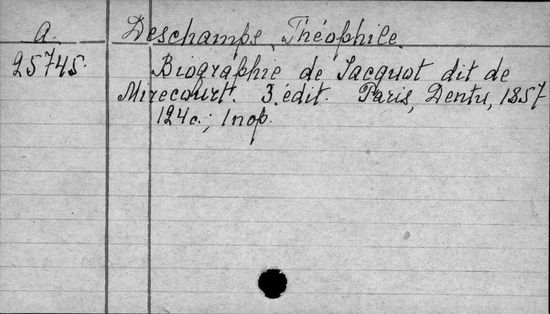 A. Deschamps, Théophile.
25745. Biographie de Jacquot dit de
Mirecourt. 3. édit. Paris, Dentu, 1857
124c.; 1 пор.